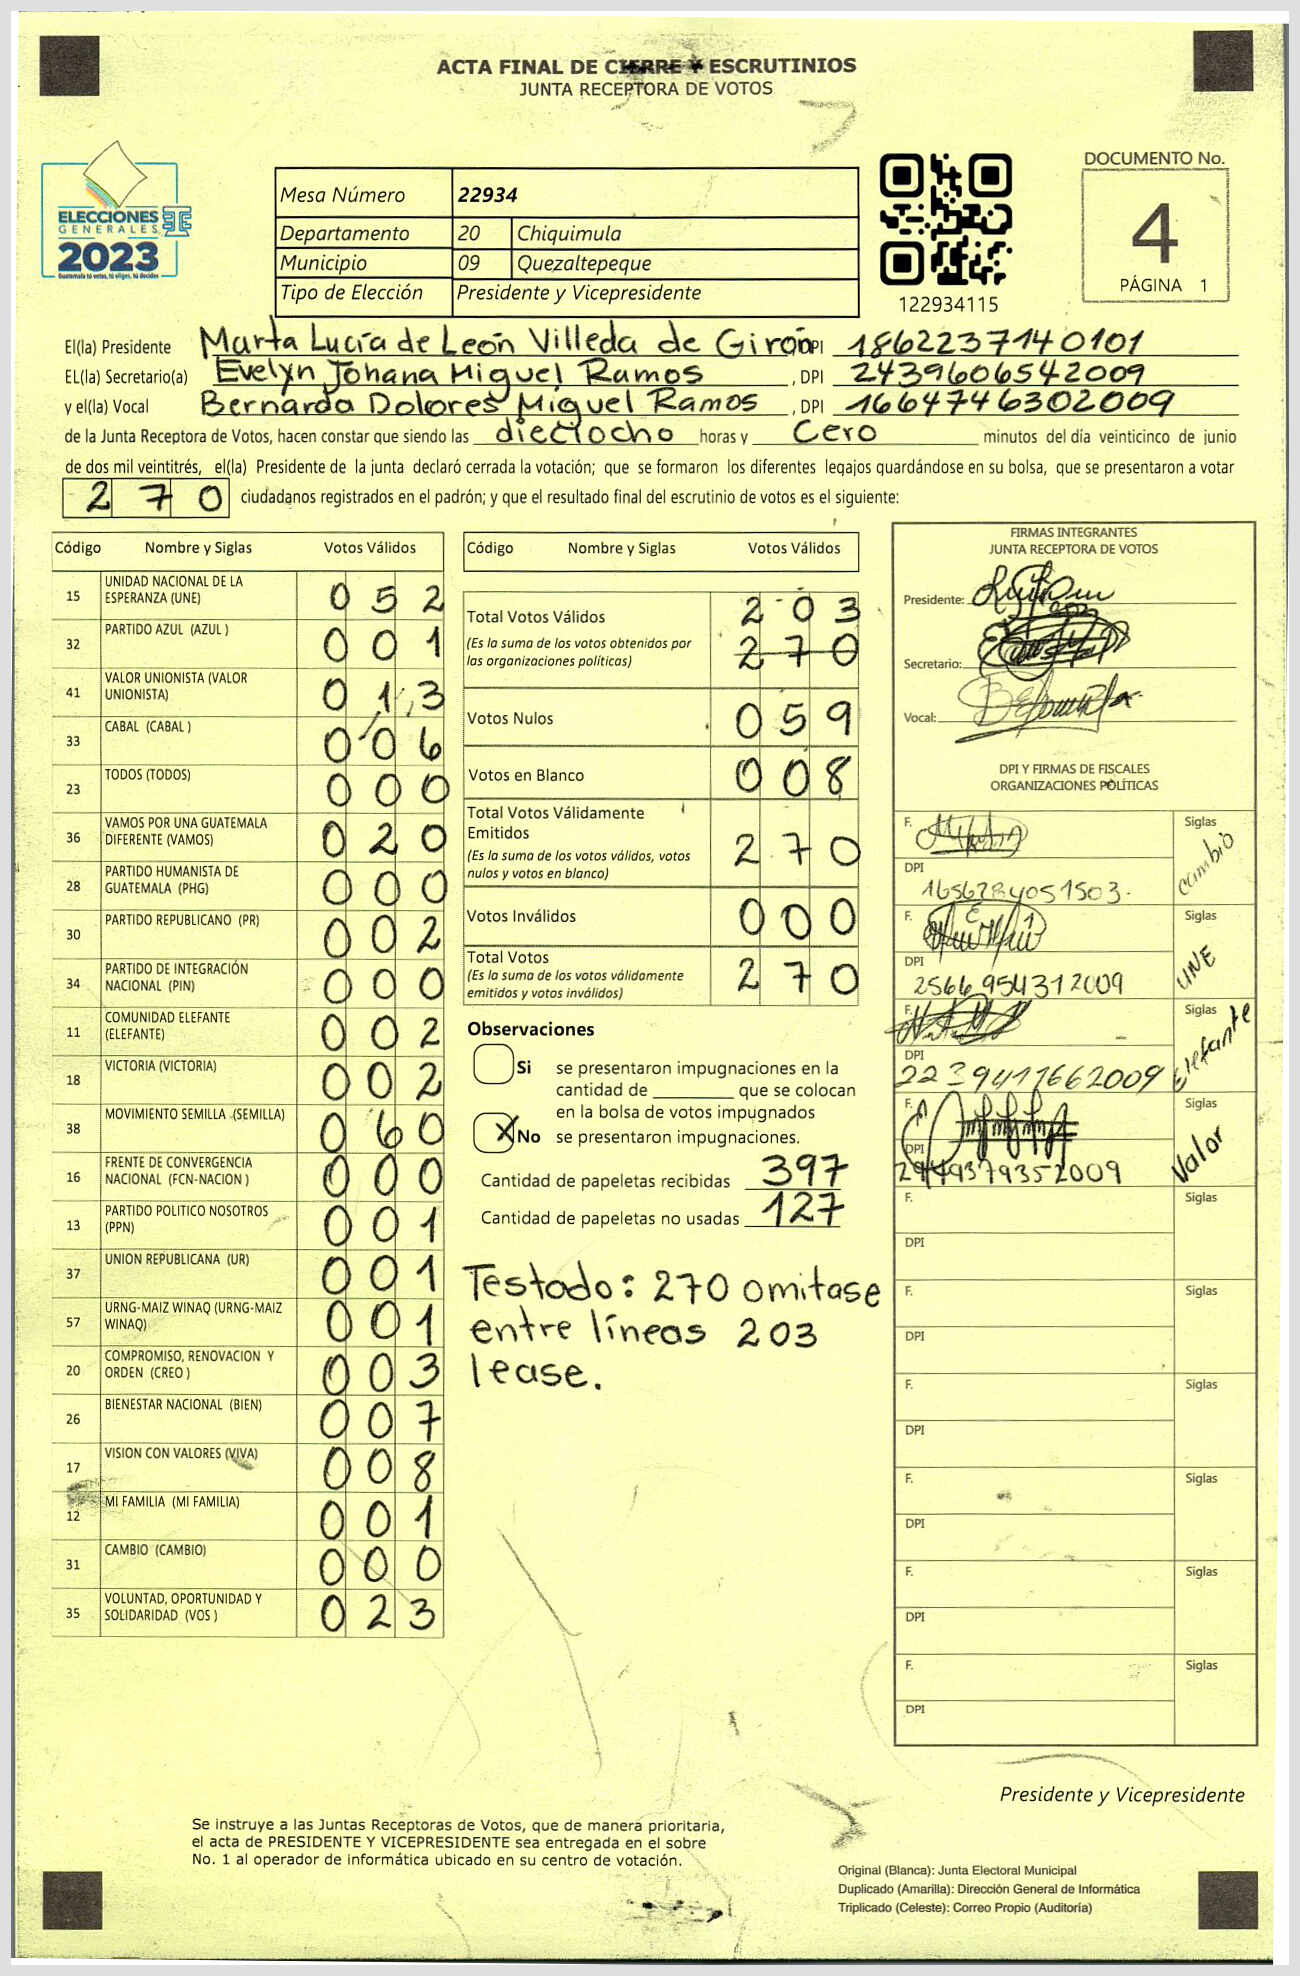 ACTA FINAL DE CIERRE Y ESCRUTINIOS
JUNTA RECEPTORA DE VOTOS
ELECCIONES
GENERALES
2023
Guatemala tú votas, tú eliges, tú decides
Mesa Número 22934
Departamento 20 Chiquimula
Municipio 09 Quezaltepeque
Tipo de Elección Presidente y Vicepresidente
122934115
DOCUMENTO No.
4
PÁGINA 1
El(la) Presidente Marta Lucía de León Villeda de Girón DPI 1862237140101
EL(la) Secretario(a) Evelyn Johana Miguel Ramos , DPI 2439606542009
y el(la) Vocal Bernarda Dolores Miguel Ramos , DPI 1664746302009
de la Junta Receptora de Votos, hacen constar que siendo las dieciocho horas y Cero minutos del día veinticinco de junio
de dos mil veintitrés, el(la) Presidente de la junta declaró cerrada la votación; que se formaron los diferentes legajos guardándose en su bolsa, que se presentaron a votar
270 ciudadanos registrados en el padrón; y que el resultado final del escrutinio de votos es el siguiente:
Código Nombre y Siglas Votos Válidos
15 UNIDAD NACIONAL DE LA ESPERANZA (UNE) 052
32 PARTIDO AZUL (AZUL ) 001
41 VALOR UNIONISTA (VALOR UNIONISTA) 013
33 CABAL (CABAL ) 006
23 TODOS (TODOS) 000
36 VAMOS POR UNA GUATEMALA DIFERENTE (VAMOS) 020
28 PARTIDO HUMANISTA DE GUATEMALA (PHG) 000
30 PARTIDO REPUBLICANO (PR) 002
34 PARTIDO DE INTEGRACIÓN NACIONAL (PIN) 000
11 COMUNIDAD ELEFANTE (ELEFANTE) 002
18 VICTORIA (VICTORIA) 002
38 MOVIMIENTO SEMILLA (SEMILLA) 060
16 FRENTE DE CONVERGENCIA NACIONAL (FCN-NACION ) 000
13 PARTIDO POLITICO NOSOTROS (PPN) 001
37 UNION REPUBLICANA (UR) 001
57 URNG-MAIZ WINAQ (URNG-MAIZ WINAQ) 001
20 COMPROMISO, RENOVACION Y ORDEN (CREO ) 003
26 BIENESTAR NACIONAL (BIEN) 007
17 VISION CON VALORES (VIVA) 008
12 MI FAMILIA (MI FAMILIA) 001
31 CAMBIO (CAMBIO) 000
35 VOLUNTAD, OPORTUNIDAD Y SOLIDARIDAD (VOS ) 023
Código Nombre y Siglas Votos Válidos
Total Votos Válidos 203
(Es la suma de los votos obtenidos por las organizaciones políticas) 270
Votos Nulos 059
Votos en Blanco 008
Total Votos Válidamente Emitidos
(Es la suma de los votos válidos, votos nulos y votos en blanco) 270
Votos Inválidos 000
Total Votos
(Es la suma de los votos válidamente emitidos y votos inválidos) 270
Observaciones
Si se presentaron impugnaciones en la
cantidad de ________ que se colocan
en la bolsa de votos impugnados
X No se presentaron impugnaciones.
Cantidad de papeletas recibidas 397
Cantidad de papeletas no usadas 127
Testado: 270 omitase
entre líneas 203
lease.
FIRMAS INTEGRANTES
JUNTA RECEPTORA DE VOTOS
Presidente:
Secretario:
Vocal:
DPI Y FIRMAS DE FISCALES
ORGANIZACIONES POLÍTICAS
F. Siglas cambio
DPI
F. Siglas UNE
DPI 2566954312009
F. Siglas Elefante
DPI 2239411662009
F. Siglas Valor
DPI 2949379352009
F. Siglas
DPI
F. Siglas
DPI
F. Siglas
DPI
F. Siglas
DPI
F. Siglas
DPI
F. Siglas
DPI
Presidente y Vicepresidente
Se instruye a las Juntas Receptoras de Votos, que de manera prioritaria,
el acta de PRESIDENTE Y VICEPRESIDENTE sea entregada en el sobre
No. 1 al operador de informática ubicado en su centro de votación.
Original (Blanca): Junta Electoral Municipal
Duplicado (Amarilla): Dirección General de Informática
Triplicado (Celeste): Correo Propio (Auditoría)